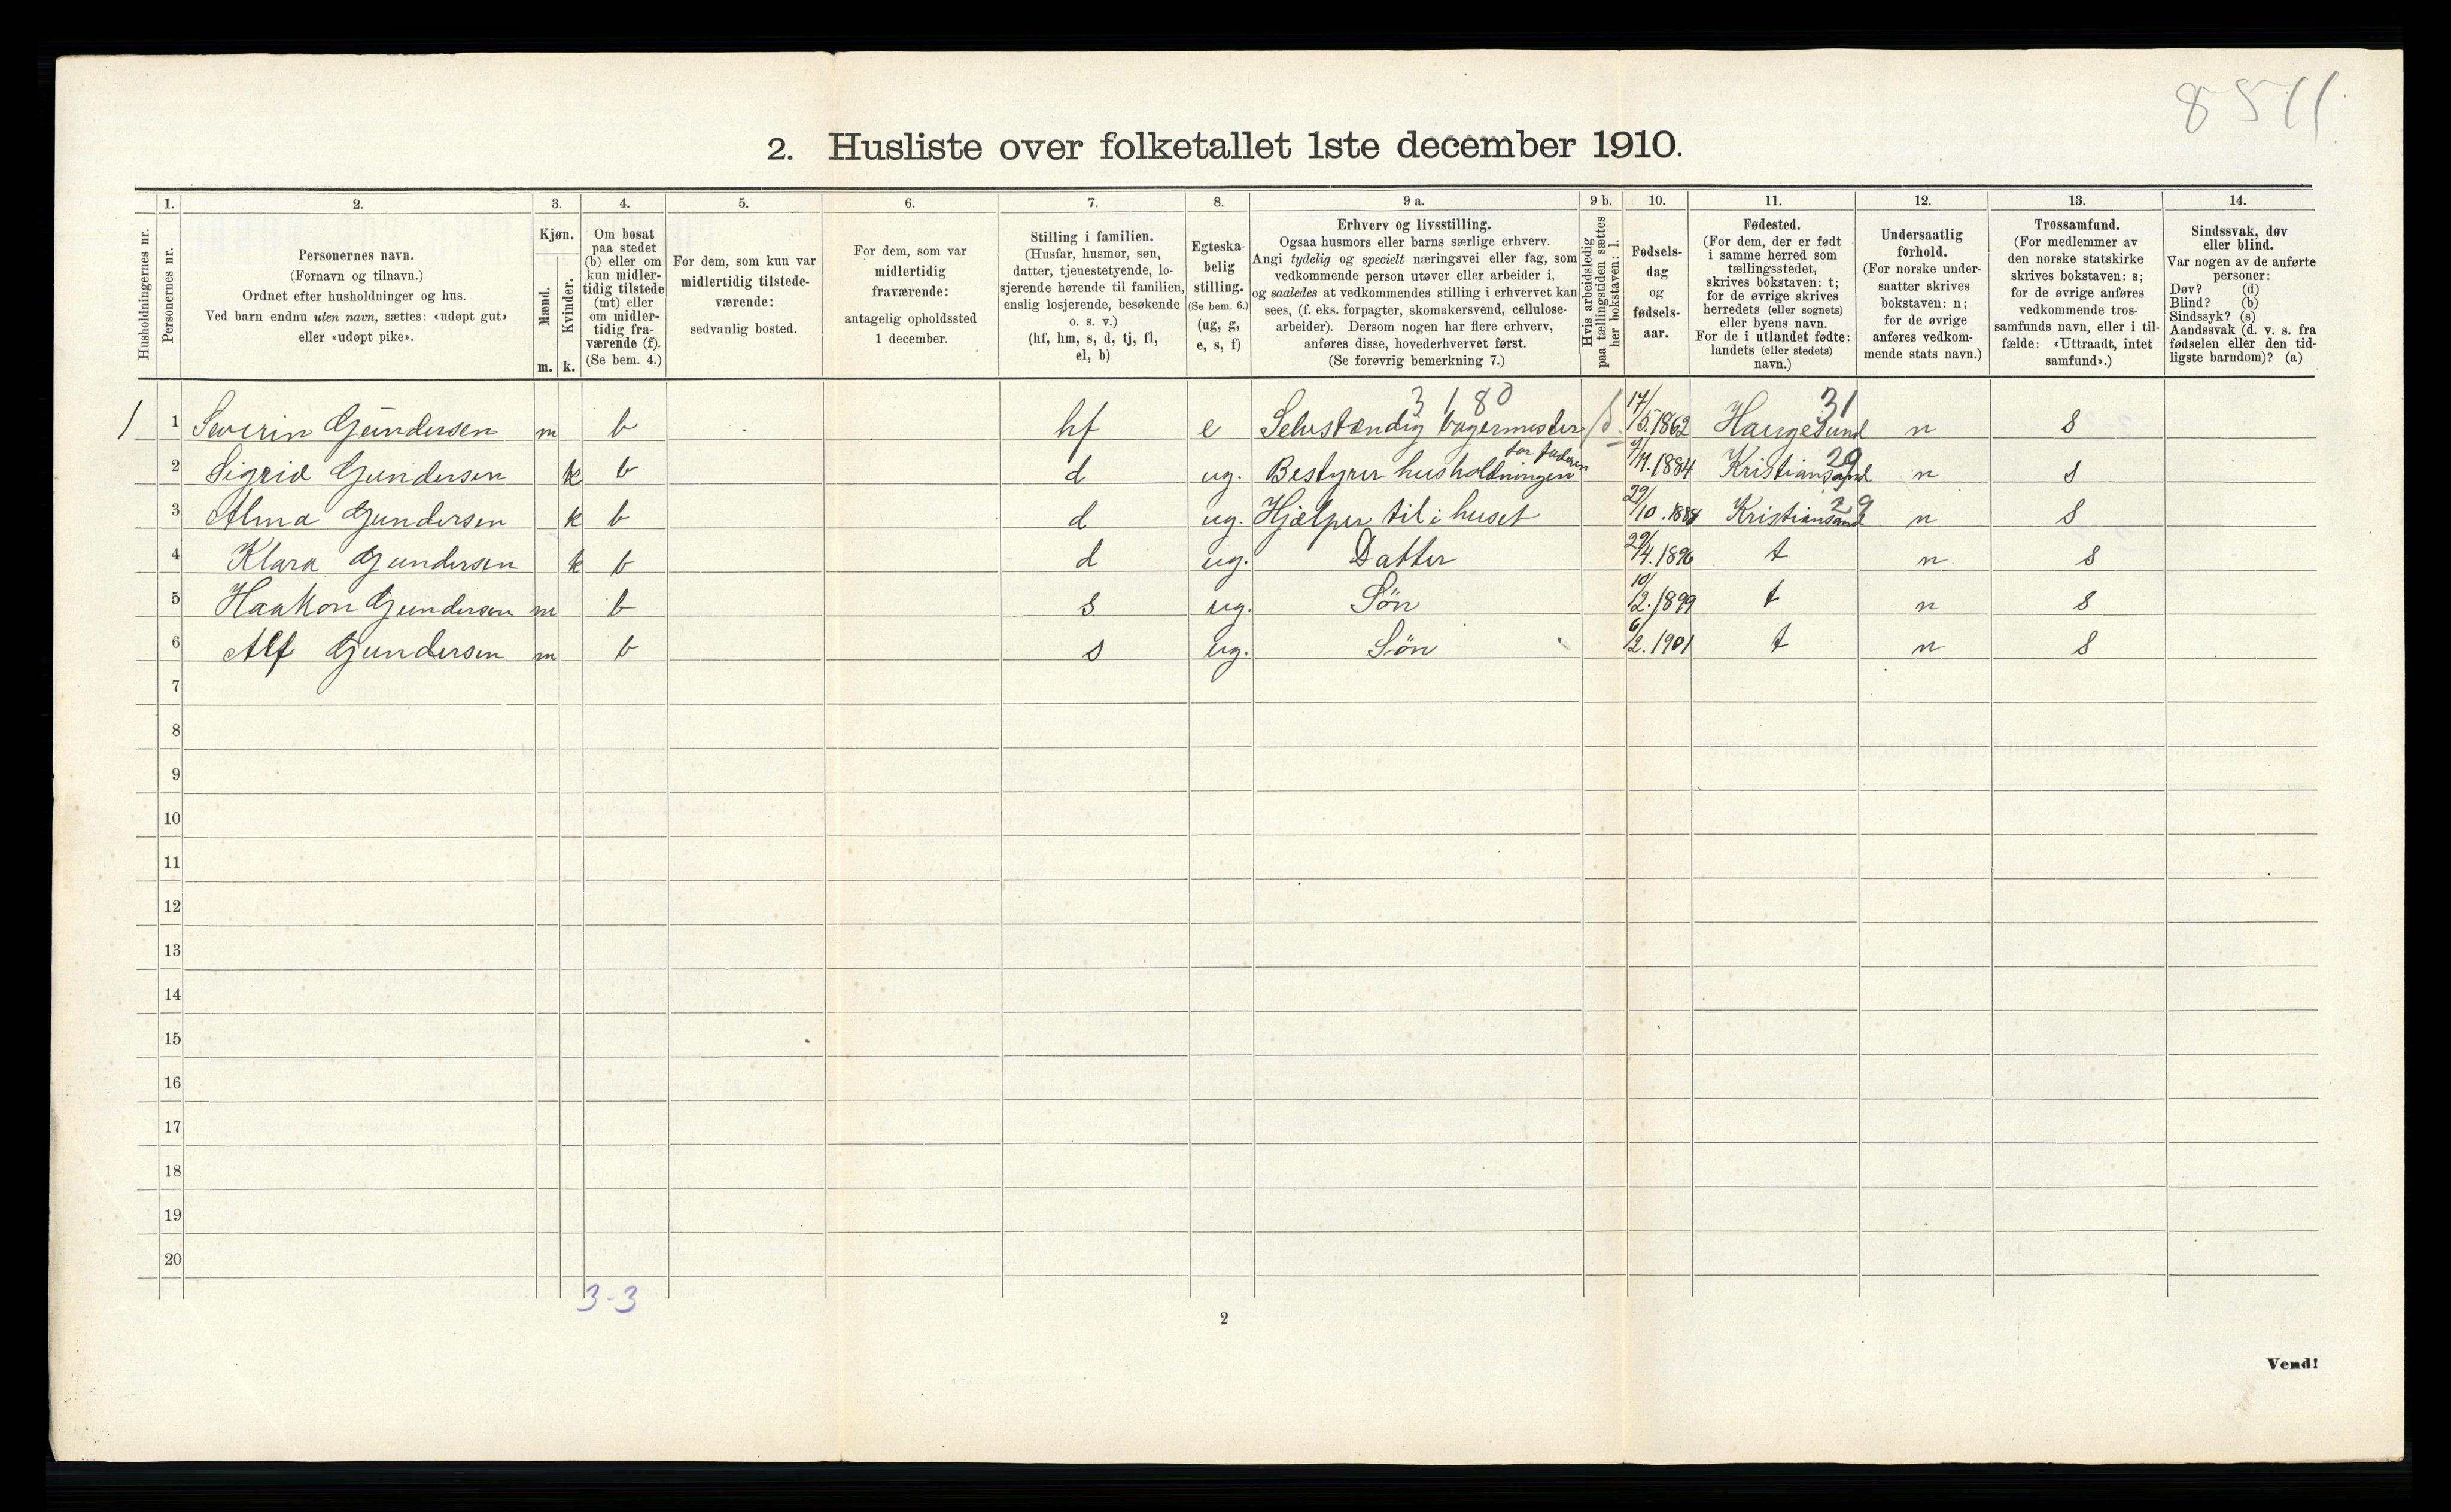 8511
2. Husliste over folketallet 1ste december 1910.
1. 2. 3. 4. 5. 6. 7. 8. 9 a. 9 b. 10. 11. 12. 13. 14.
Husholdningernes nr.
Personernes nr.
Personernes navn.
(Fornavn og tilnavn.)
Ordnet efter husholdninger og hus.
Ved barn endnu uten navn, sættes: «udøpt gut»
eller «udøpt pike».
Kjøn.
Mænd.
Kvinder.
m. k.
Om bosat
paa stedet
(b) eller om
kun midler-
tidig tilstede
(mt) eller
om midler-
tidig fra-
værende (f).
(Se bem. 4.)
For dem, som kun var
midlertidig tilstede-
værende:
sedvanlig bosted.
For dem, som var
midlertidig
fraværende:
antagelig opholdssted
1 december.
Stilling i familien.
(Husfar, husmor, søn,
datter, tjenestetyende, lo-
sjerende hørende til familien,
enslig losjerende, besøkende
o. s. v.)
(hf, hm, s, d, tj, fl,
el, b)
Egteska-
belig
stilling.
(Se bem. 6.)
(ug, g,
e, s, f)
Erhverv og livsstilling.
Ogsaa husmors eller barns særlige erhverv.
Angi tydelig og specielt næringsvei eller fag, som
vedkommende person utøver eller arbeider i,
og saaledes at vedkommendes stilling i erhvervet kan
sees, (f. eks. forpagter, skomakersvend, cellulose-
arbeider). Dersom nogen har flere erhverv,
anføres disse, hovederhvervet først.
(Se forøvrig bemerkning 7.)
Hvis arbeidsledig
paa tællingstiden sættes
her bokstaven: l.
Fødsels-
dag
og
fødsels-
aar.
Fødested.
(For dem, der er født
i samme herred som
tællingsstedet,
skrives bokstaven: t;
for de øvrige skrives
herredets (eller sognets)
eller byens navn.
For de i utlandet fødte:
landets (eller stedets)
navn.)
Undersaatlig
forhold.
(For norske under-
saatter skrives
bokstaven: n;
for de øvrige
anføres vedkom-
mende stats navn.)
Trossamfund.
(For medlemmer av
den norske statskirke
skrives bokstaven: s;
for de øvrige anføres
vedkommende tros-
samfunds navn, eller i til-
fælde: «Uttraadt, intet
samfund».)
Sindssvak, døv
eller blind.
Var nogen av de anførte
personer:
Døv? (d)
Blind? (b)
Sindssyk? (s)
Aandssvak (d. v. s. fra
fødselen eller den tid-
ligste barndom)? (a)
3 1 80 31
1 1 Severin Gundersen m b hf e Selvstændig bagermester 17/5.1862 Haugesund n s
for faderen 29
2 Sigrid Gundersen k b d ug. Bestyrer husholdningen 1884 Kristiansand n s
29
3 Alma Gundersen k b d ug. Hjælper til i huset 29/10.1888 Kristiansand n s
4 Klara Gundersen k b d ug. Datter 29/4.1896 t n s
5 Haakon Gundersen m b s ug. Søn 10/2.1899 t n s
6 Alf Gundersen m b s ug. Søn 6/2.1901 t n s
7
8
9
10
11
12
13
14
15
16
17
18
19
20
3-3
2
Vend!